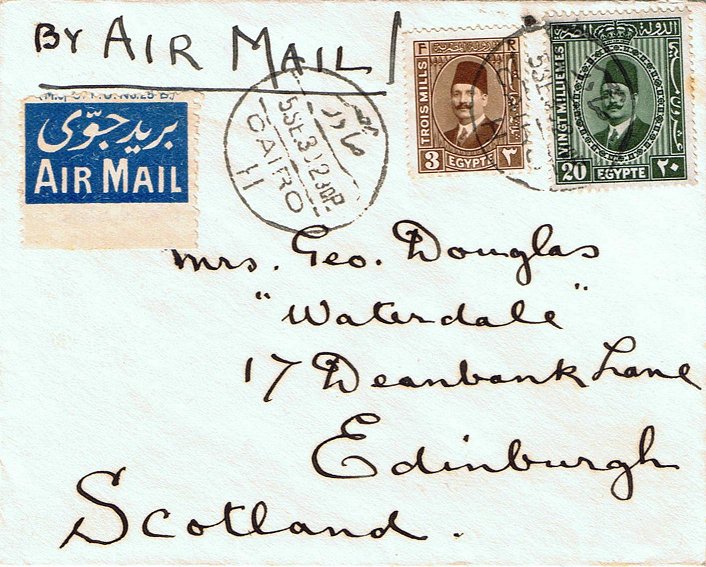 BY AIR MAIL/
بريد جوّى
AIR MAIL
صادر
5 SE 30 12 30P
CAIRO
11
F R
TROIS MILLS
3 EGYPTE ٣
VINGT MILLIEMES
20 EGYPTE ٢٠
Mrs. Geo. Douglas
"Waterdale"
17 Deanbank Lane
Edinburgh
Scotland.